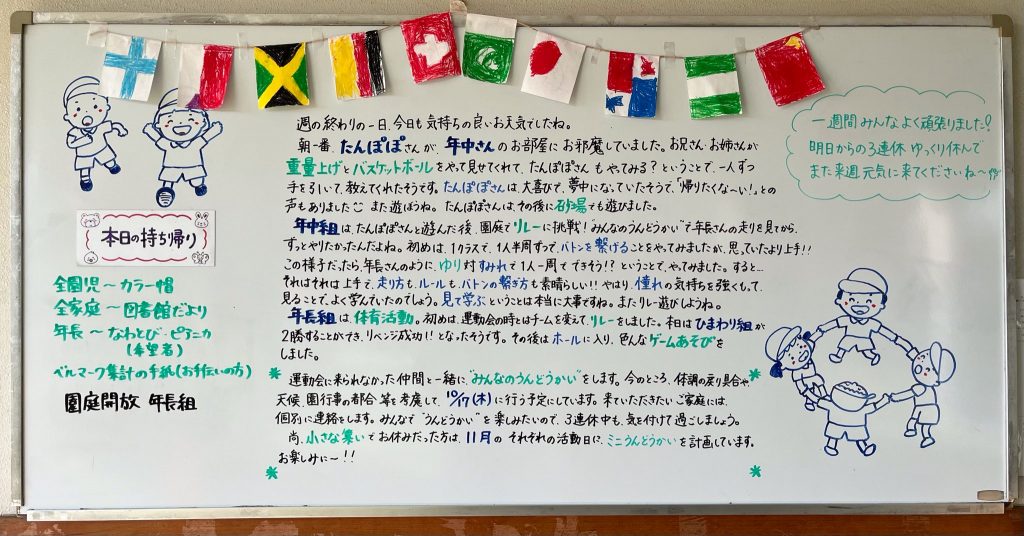 週の終わりの一日、今日も気持ちの良いお天気でしたね。
朝一番、たんぽぽさんが、年中さんのお部屋にお邪魔していました。お兄さん・お姉さんが
重量上げとバスケットボールをやって見せてくれて、たんぽぽさんもやってみる？ということで、一人ずつ
手を引いて、教えてくれたそうです。たんぽぽさんは、大喜びで、夢中になっていたそうで、「帰りたくな〜い！」との
声もありました また遊ぼうね。たんぽぽさんは、その後に砂場でも遊びました。
年中組は、たんぽぽさんと遊んだ後、園庭でリレーに挑戦！“みんなのうんどうかい”で年長さんの走りを見てから、
ずっとやりたかったんだよね。初めは、1クラスで、1人半周ずつで、バトンを繋げることをやってみましたが、思っていたより上手！！
この様子だったら、年長さんのように、ゆり対すみれで1人一周でできそう!? ということで、やってみました。すると…
それはそれは上手で、走り方も、ルールも、バトンの繋ぎ方も素晴らしい!! やはり、憧れの気持ちを強くもって、
見ることで、よく学んでいたのでしょう。見て学ぶということは本当に大事ですね。またリレー遊びしようね。
年長組は、体育活動。初めは、運動会の時とはチームを変えて、リレーをしました。本日はひまわり組が
2勝することができ、リベンジ成功!! となったそうです。その後はホールに入り、色んなゲームあそびを
しました。
運動会に来られなかった仲間と一緒に、“みんなのうんどうかい”をします。今のところ、体調の戻り具合や
天候、園行事の都合等を考慮して、10/17(木)に行う予定にしています。来ていただきたいご家庭には、
個別に連絡をします。みんなで“うんどうかい”を楽しみたいので、3連休中も、気を付けて過ごしましょう。
尚、小さな集いでお休みだった方は、11月のそれぞれの活動日に、ミニうんどうかいを計画しています。
お楽しみに〜!!
一週間みんなよく頑張りました！
明日からの3連休 ゆっくり休んで
また来週元気に来てくださいね〜
本日の持ち帰り
全園児〜カラー帽
全家庭〜図書館だより
年長〜なわとび・ピアニカ
(希望者)
ベルマーク集計の手紙(お手伝いの方)
園庭開放 年長組